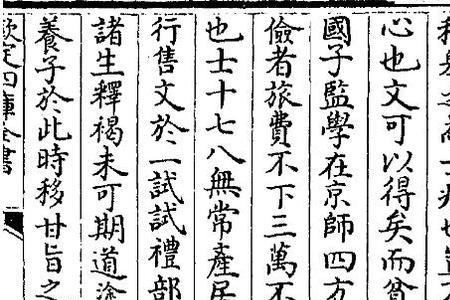 心也文可以得矣而答
國子監學在京師四方
儉者旅費不下三萬不
也士十七八無常產居
行售文於二試試禮部
諸生釋褐未可期道途
養子於此時移甘旨之
欽定四庫全書